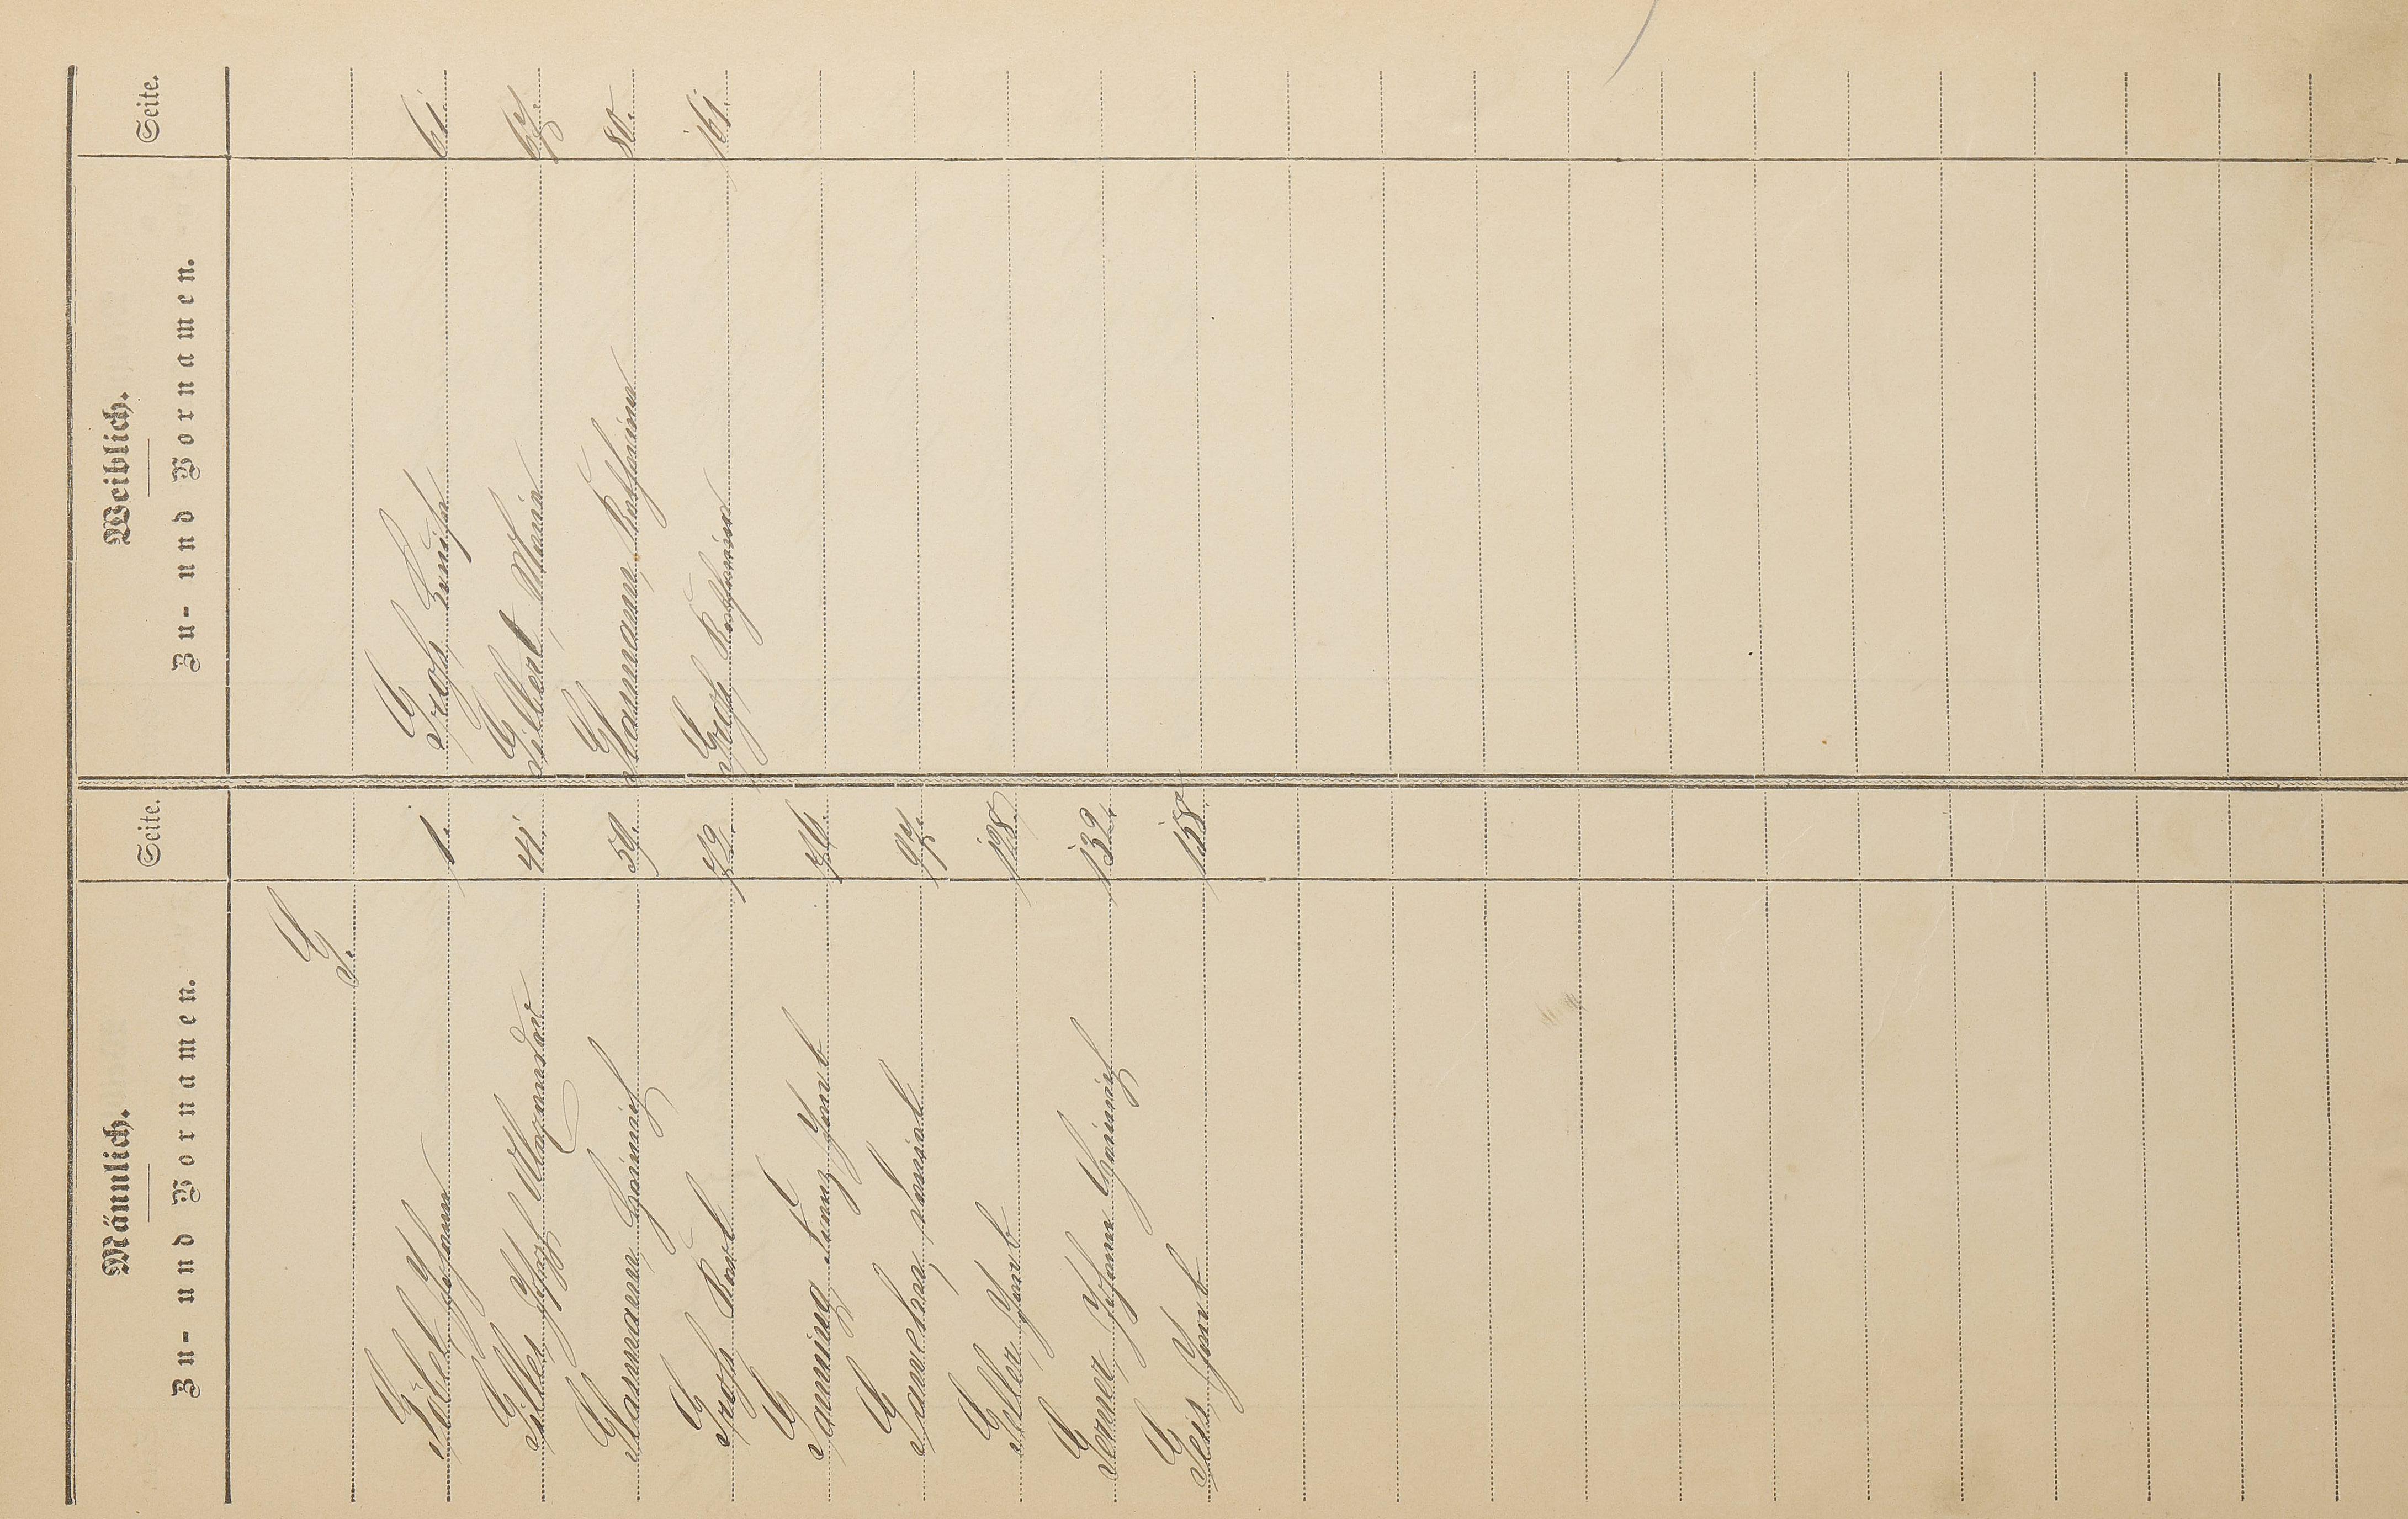 Männlich.
Zu- und Vornamen. Seite.
G.
Göbel Johann 1.
Gilles, Joseph Alexander 41.
Glasmann, Heinrich 59.
Groß, Karl 72.
Ganning, Franz Jakob 76.
Ganehan, Konrad 97.
Geller, Jakob 128.
Gerner, Johann Heinrich 132.
Geis, Jakob 158.
Weiblich.
Zu- und Vornamen. Seite.
Groß, Louise 61.
Gilbert, Maria 67.
Glasmann, Katharina 80.
Groß, Katharina 161.